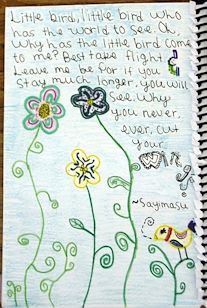 Little bird, little bird who
has the world to see. Oh,
Why has the little bird come
to me? Best take flight,
Leave me be For if you
stay much longer, you will
see. Why
you never,
ever, cut
your
WINGS.
~Sayimasu